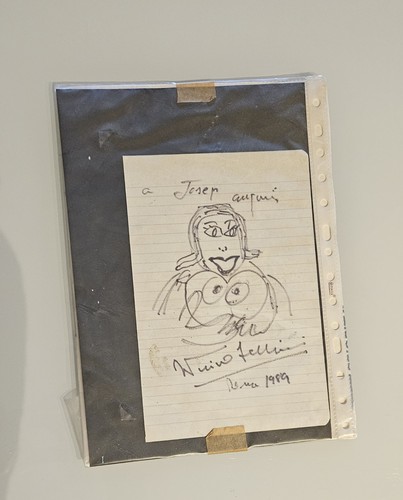 a Josep auguri
Fellini
Roma 1989